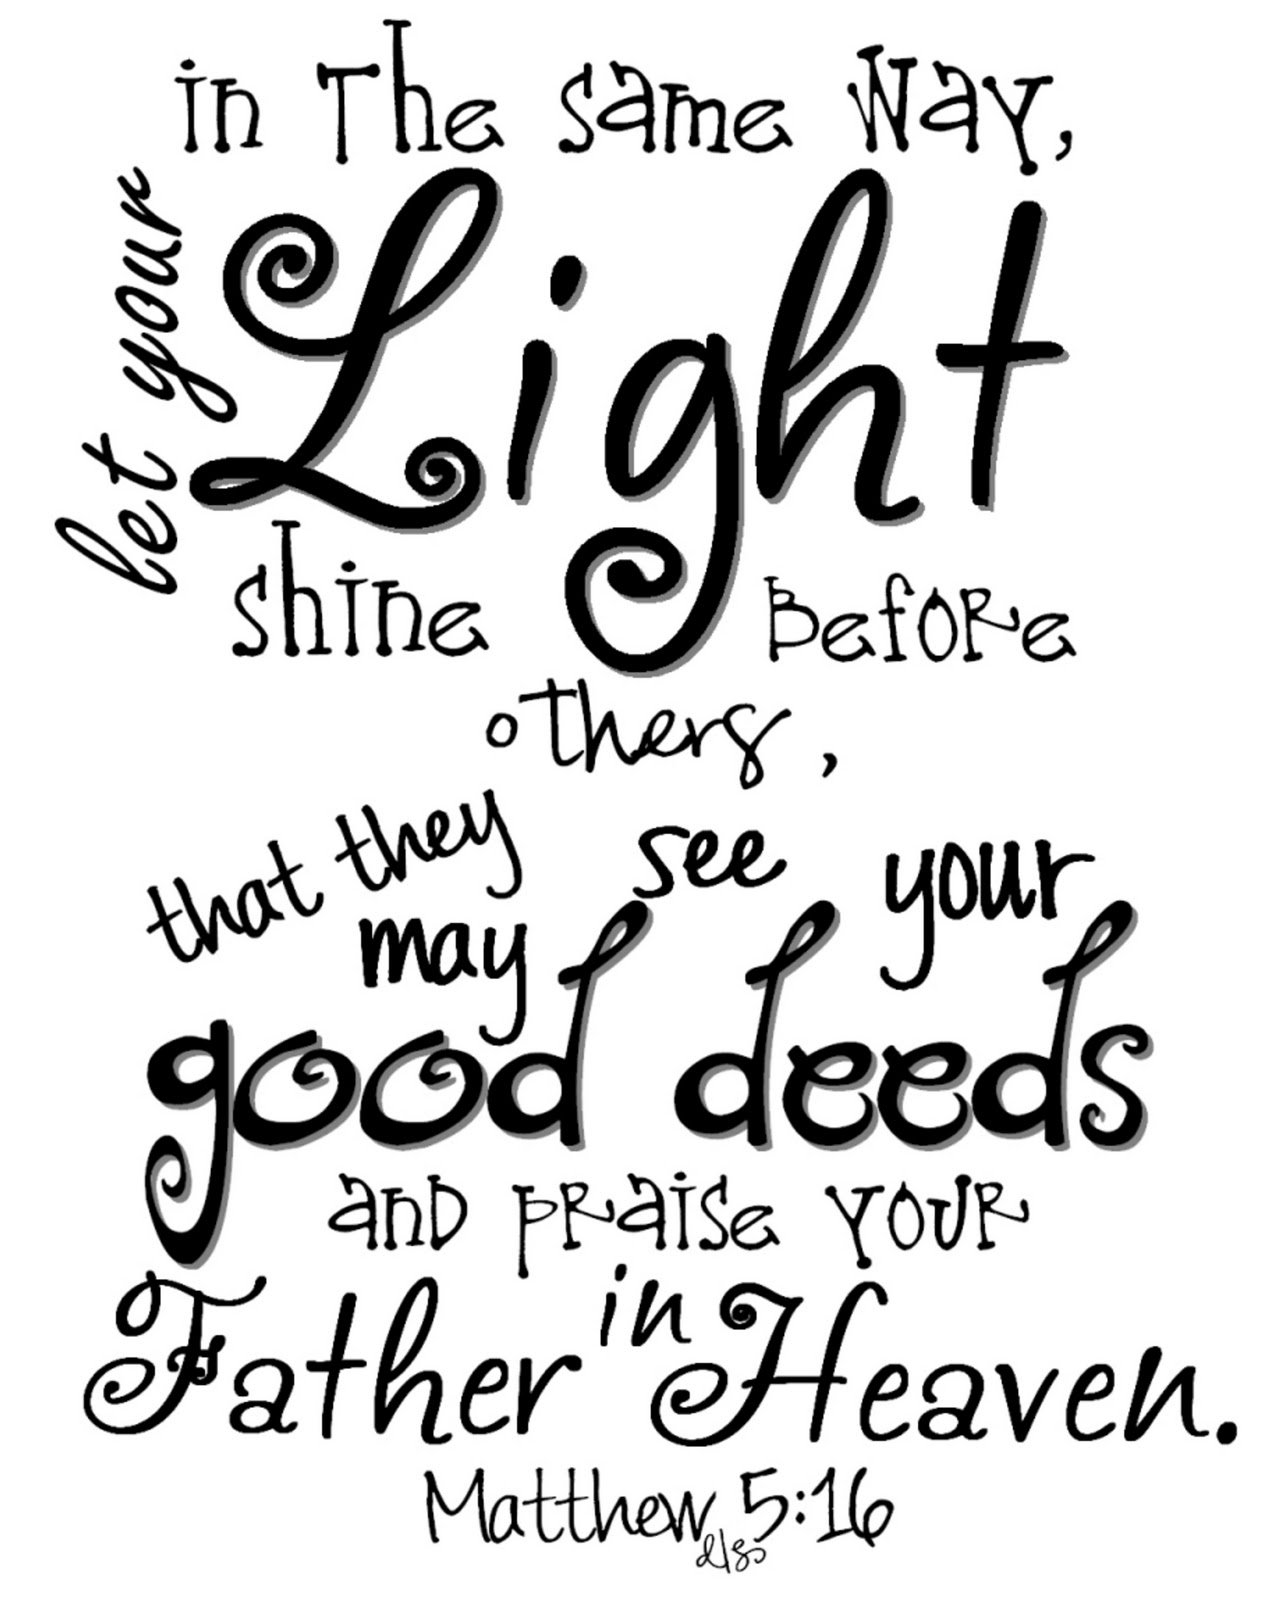 in The same Way,
let your
Light
shine Before
others,
that they
may
see your
good deeds
and praise your
Father in Heaven.
Matthew 5:16